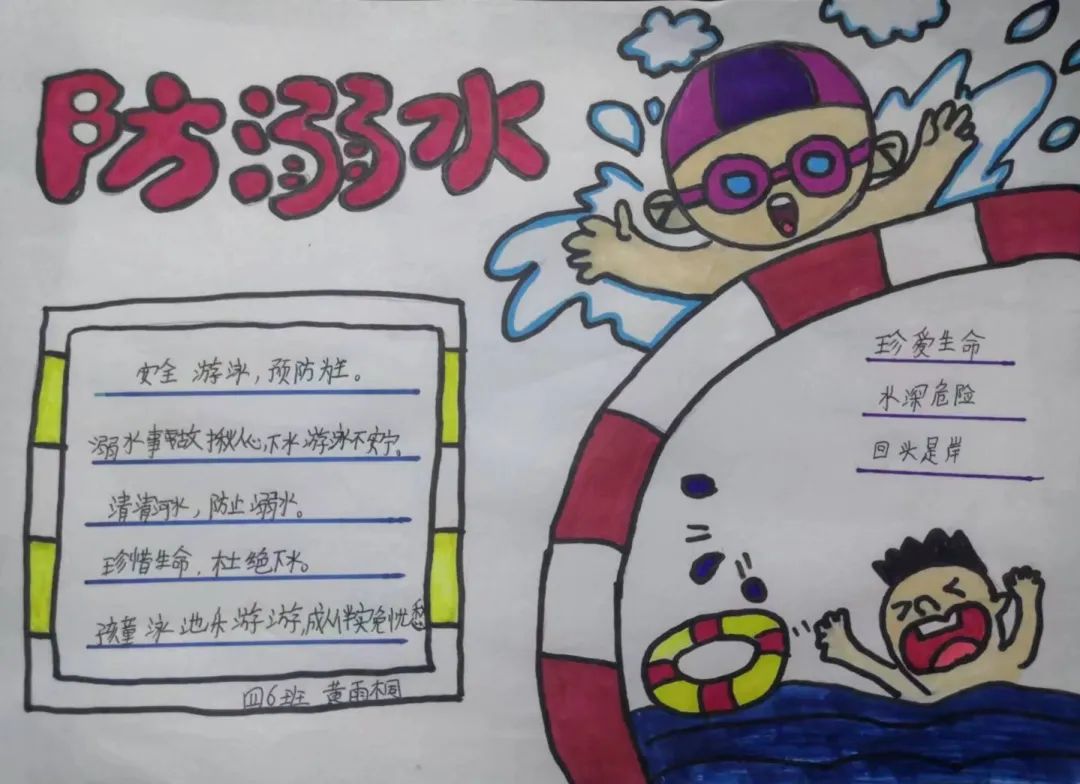 防溺水
安全游泳，预防为主。
溺水事故揪人心，下水游泳不安宁。
清清河水，防止溺水。
珍惜生命，杜绝下水。
孩童泳池乐游游，成伴实免忧愁
四6班 黄雨桐
珍爱生命
水深危险
回头是岸